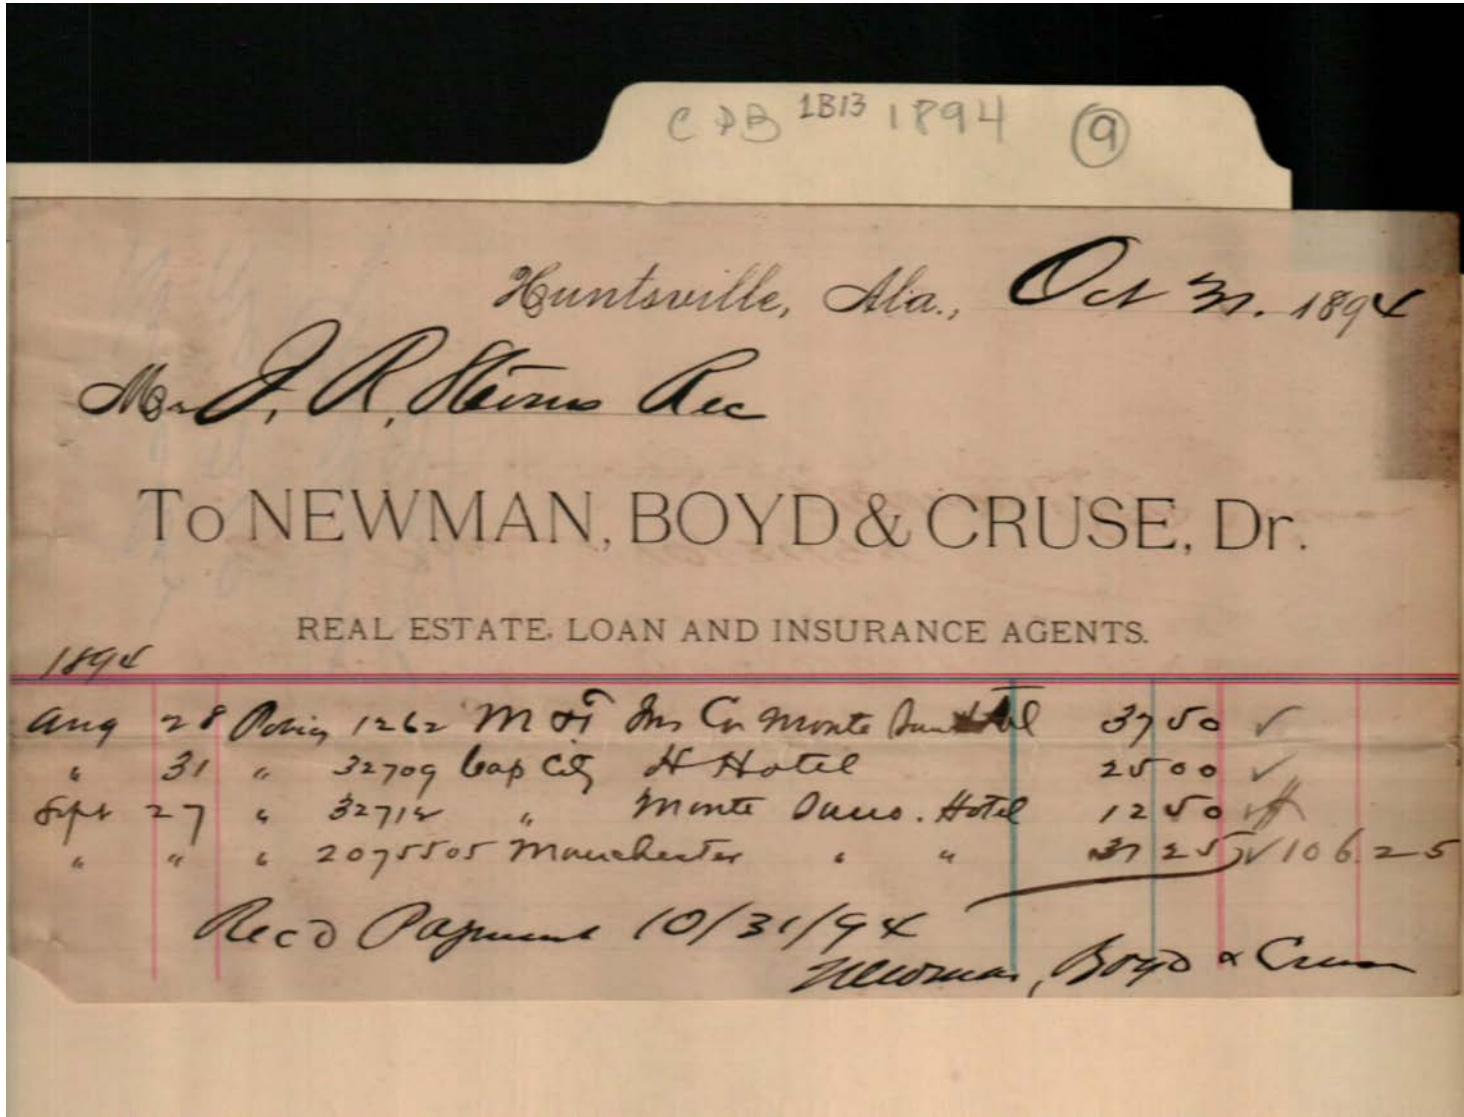 CPB 1B13 1894 9
Huntsville, Ala., Oct 31. 1894
Mr J. R. Stevens Rec
To NEWMAN, BOYD & CRUSE, Dr.
REAL ESTATE, LOAN AND INSURANCE AGENTS.
1894
Aug 28 Policy 1262 M & T Ins Co Monte Sano Hotel 37 50 ✓
" 31 " 32709 Cap City H Hotel 25 00 ✓
Sept 27 " 32712 " Monte Sano. Hotel 12 50 ✓
" " " 2075505 Manchester " " 31 25 ✓ 106.25
Rec'd Payment 10/31/94
Newman, Boyd & Cruse